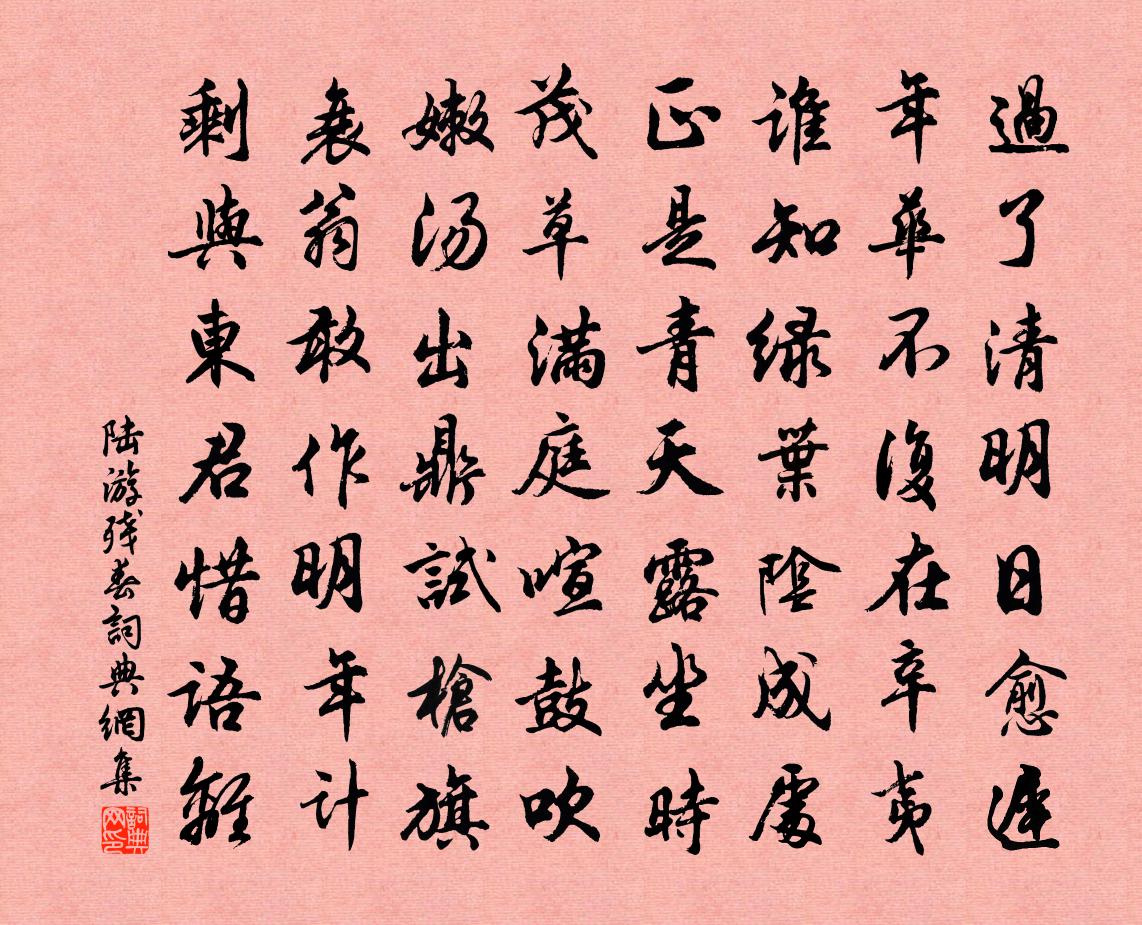 過了清明日愈遲
年華不復在辛夷
誰知綠葉陰成處
正是青天露坐時
茂草滿庭喧鼓吹
嫩湯出鼎試槍旗
衰翁敢作明年計
剩與東君惜語離
陸游殘春詞典網集
詞典网印